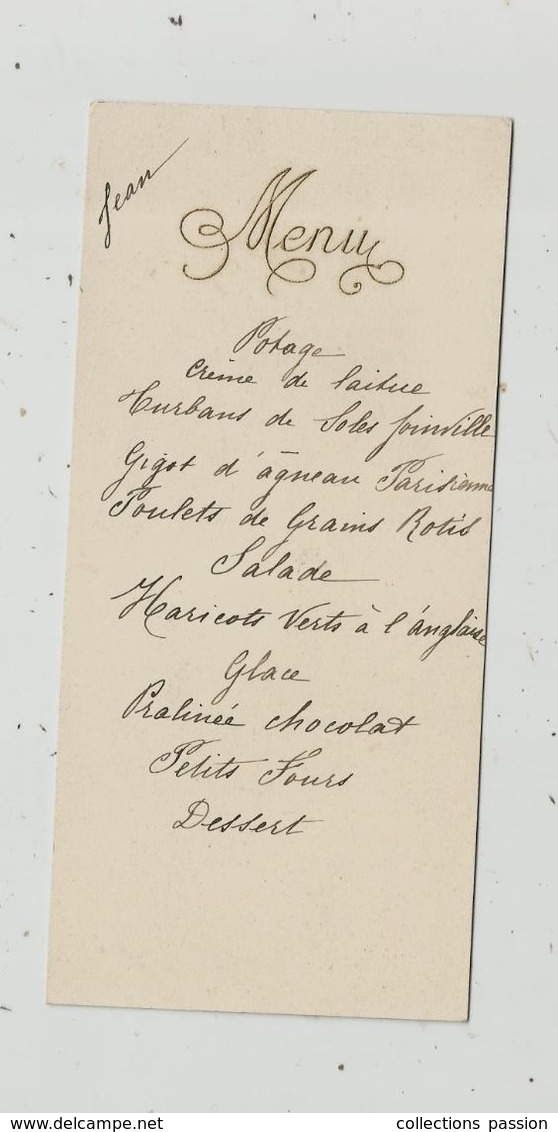 Jean
Menu
Potage
Crème de laitue
Turbans de Soles Joinville
Gigot d'agneau Parisienne
Poulets de Grains Rotis
Salade
Haricots Verts à l'anglaise
Glace
Pralinée chocolat
Petits Fours
Dessert
collections passion